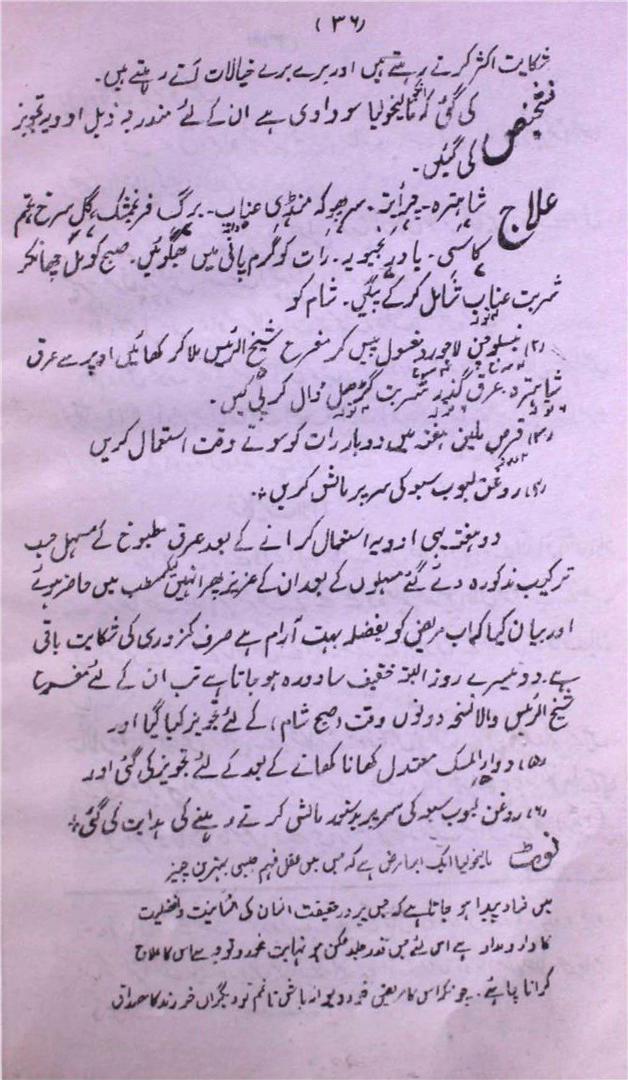 (۳۶)
شکایت اکثر کرتے رہتے ہیں اور برے برے خیالات آتے رہتے ہیں۔
تشخیص کی گئی کہ مالیخولیا سوداوی ہے ان کے لئے مندرجہ ذیل ادویہ تجویز
کی گئیں۔
علاج شاہترہ۔ چرائتہ۔ سرپھوکہ منڈی عناب۔ برگ فرنجمشک، گل سرخ تخم
کاسنی۔ بادرنجبویہ۔ رات کو گرم پانی میں بھگوئیں۔ صبح کو مل چھانکر
شربت عناب شامل کر کے پئیں۔ شام کو
(۲) لاجورد مغسول پیس کر مفرح شیخ الرئیس ملا کر کھائیں اوپر سے عرق
شاہترہ۔ عرق گذر شربت گڑھل ڈال کر پی لیں۔
(۳) قرص ملین ہفتہ میں دو بار رات کو سوتے وقت استعمال کریں
(۴) روغن لبوب سبعہ کی سر پر مالش کریں۔
دو ہفتہ یہی ادویہ استعمال کرانے کے بعد عرق مطبوخ کے مسہل حسب
ترکیب مذکورہ دئے گئے مسہلوں کے بعد ان کے عزیز پھر انہیں لیکر مطب میں حاضر ہوئے
اور بیان کیا کہ اب مریض کو بفضلہ بہت آرام ہے صرف کمزوری کی شکایت باقی
ہے۔ دوسرے تیسرے روز البتہ خفیف سا دورہ ہو جاتا ہے تب ان کے لئے مفرح
شیخ الرئیس والا نسخہ دونوں وقت (صبح شام) کے لئے تجویز کیا گیا اور
(۵) دواء المسک معتدل کھانا کھانے کے بعد کے لئے تجویز کی گئی اور
(۶) روغن لبوب سبعہ کی سر پر بدستور مالش کرتے رہنے کی ہدایت کی گئی
نوٹ مالیخولیا ایک ایسا مرض ہے کہ جس میں عقل فہم جیسی بہترین چیز
میں فساد پیدا ہو جاتا ہے کہ جس پر درحقیقت انسان کی انسانیت و افضلیت
کا دار و مدار ہے اس لئے جس قدر جلد ممکن ہو نہایت غور و توجہ سے اس کا علاج
کرانا چاہئے۔ چونکہ اس کا مریض خود دیوانہ باشی تا غم تو دیگراں خورند کا مصداق